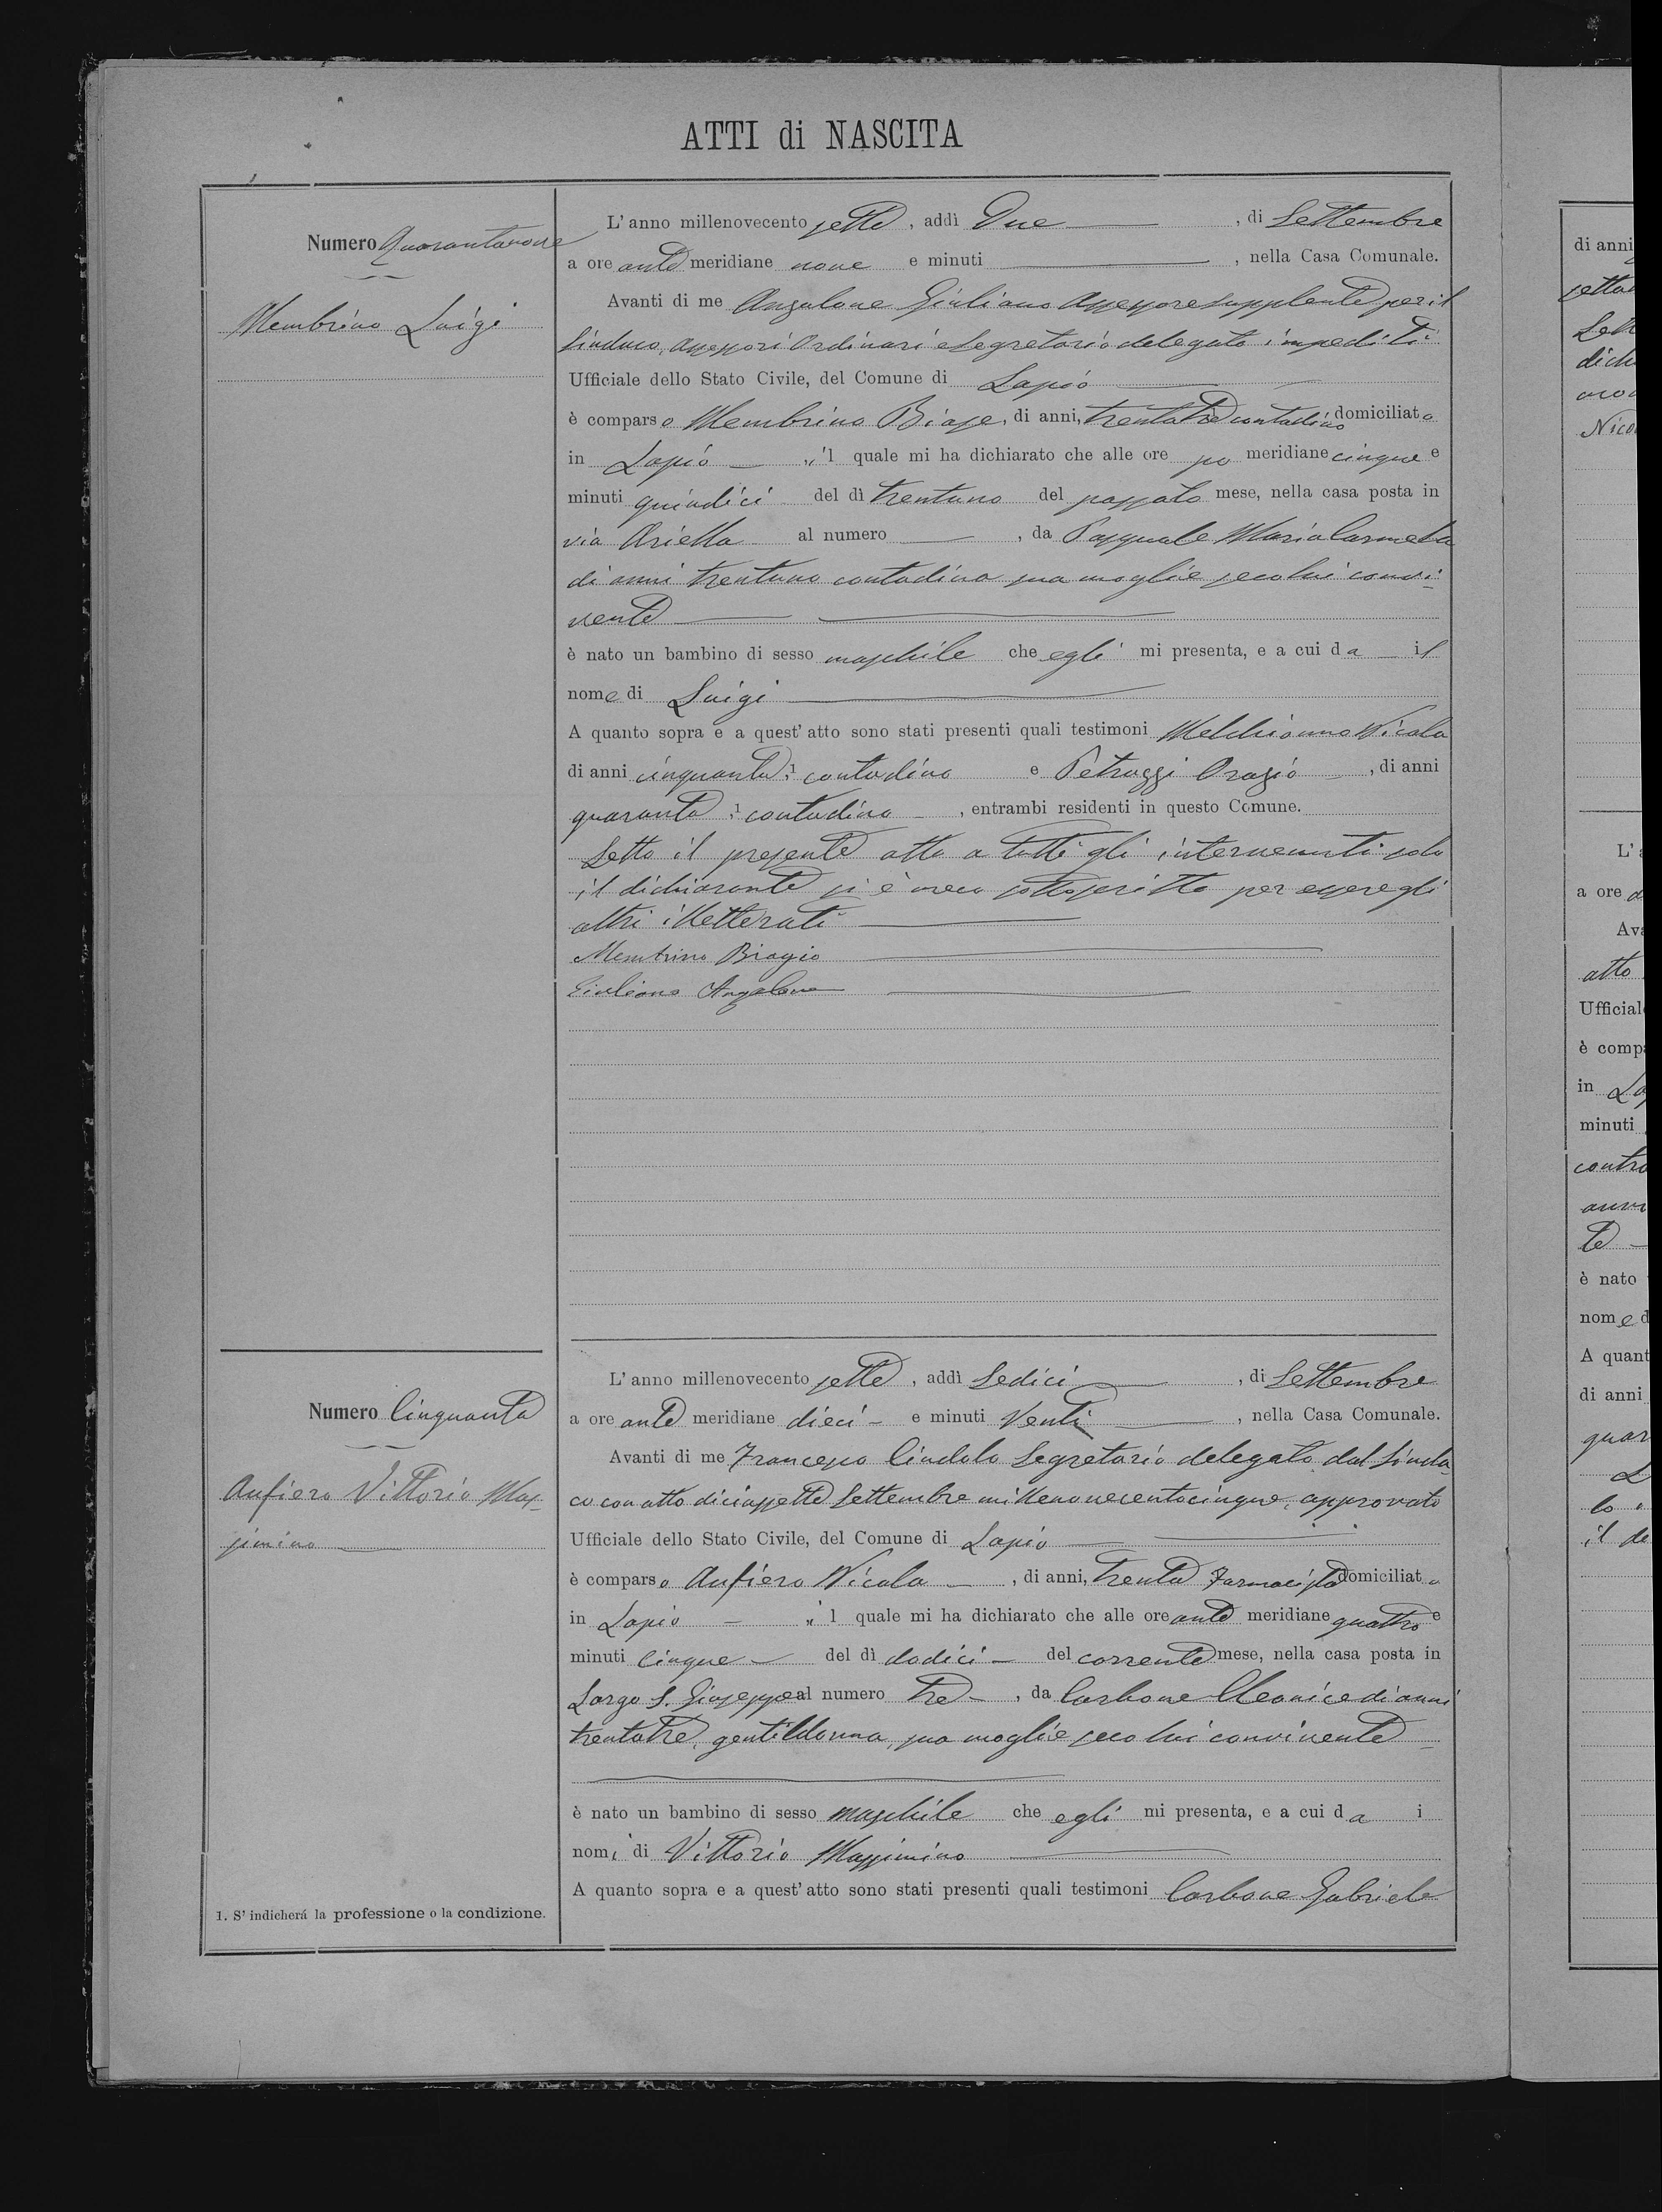 ATTI di NASCITA
Numero Quarantanove
Membrino Luigi
L'anno millenovecento sette, addì Due, di Settembre
a ore ante meridiane nove e minuti , nella Casa Comunale.
Avanti di me Angelone Giuliano Assessore supplente per il
Sindaco, Assessori Ordinari e Segretario delegato impediti
Ufficiale dello Stato Civile, del Comune di Lapio
è comparso Membrino Biase, di anni, trentatre contadino domiciliato
in Lapio il quale mi ha dichiarato che alle ore po meridiane cinque e
minuti quindici del dì trentuno del passato mese, nella casa posta in
via Ariella al numero , da Pasquale Maria Carmela
di anni trentuno contadina sua moglie seco lui convi-
vente
è nato un bambino di sesso maschile che egli mi presenta, e a cui da il
nome di Luigi
A quanto sopra e a quest'atto sono stati presenti quali testimoni Melchionno Nicola
di anni cinquanta 1 contadino e Petruzzi Orazio, di anni
quaranta 1 contadino, entrambi residenti in questo Comune.
Letto il presente atto a tutti gli intervenuti solo
il dichiarante si è meco sottoscritto per essere gli
altri illetterati
Membrino Biagio
Giuliano Angelone
Numero Cinquanta
Anfiero Vittorio Mas-
simino
L'anno millenovecento sette, addì Sedici, di Settembre
a ore ante meridiane dieci e minuti Venti, nella Casa Comunale.
Avanti di me Francesco Cindolo Segretario delegato dal Sinda-
co con atto diciassette Settembre millenovecentocinque, approvato
Ufficiale dello Stato Civile, del Comune di Lapio
è comparso Anfiero Nicola, di anni, trenta Farmacista domiciliato
in Lapio il quale mi ha dichiarato che alle ore ante meridiane quattro e
minuti Cinque del dì dodici del corrente mese, nella casa posta in
Largo S. Giuseppe al numero tre, da Carbone Cleonice di anni
trentatre, gentildonna, sua moglie seco lui convivente
è nato un bambino di sesso maschile che egli mi presenta, e a cui da i
nomi di Vittorio Massimino
A quanto sopra e a quest'atto sono stati presenti quali testimoni Carbone Gabriele
1. S'indicherá la professione o la condizione.
di anni
dich
Nico
L'
a ore
Av
atto
Ufficial
è comp
in La
minuti
contra
te
è nato
nome d
A quant
di anni
quar
il de